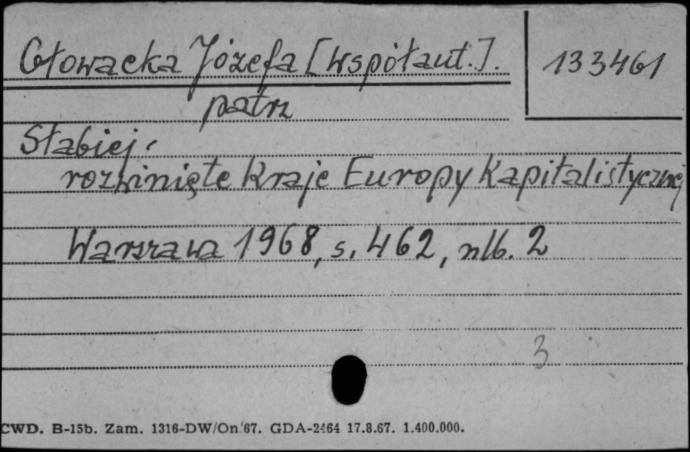 Głowacka Józefa [współaut.].
133461
patrz
Słabiej
rozwinięte kraje Europy Kapitalistycznej
Warszawa 1968, s. 462, nlb. 2
3
CWD. B-15b. Zam. 1316-DW/On/67. GDA-2464 17.8.67. 1.400.000.